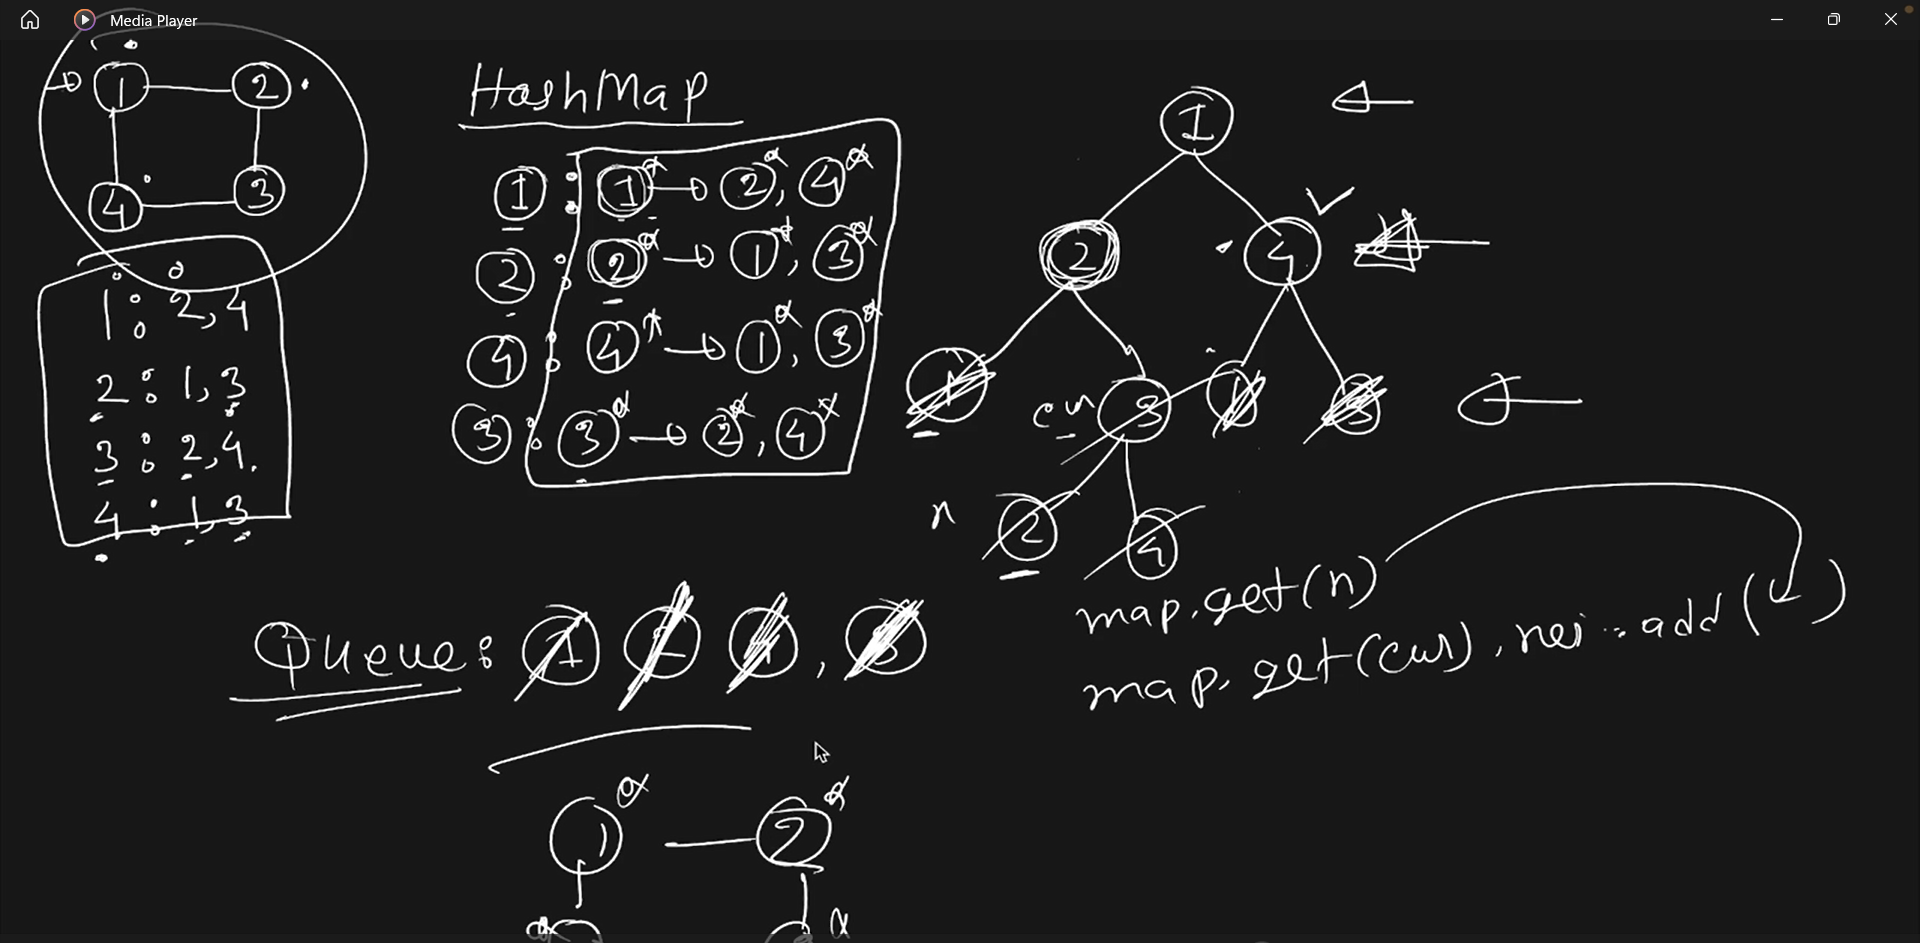 Media Player
1 2
4 3
1 : 2, 4
2 : 1, 3
3 : 2, 4.
4 : 1, 3
HashMap
1 : 1* → 2*, 4*
2 : 2* → 1*, 3*
4 : 4* → 1*, 3*
3 : 3* → 2*, 4*
1
2 4
1 cur 3 1 3
n 2 4
map.get(n)
map.get(cur).nei...add( )
Queue: 1 2 4, 3
1* 2*